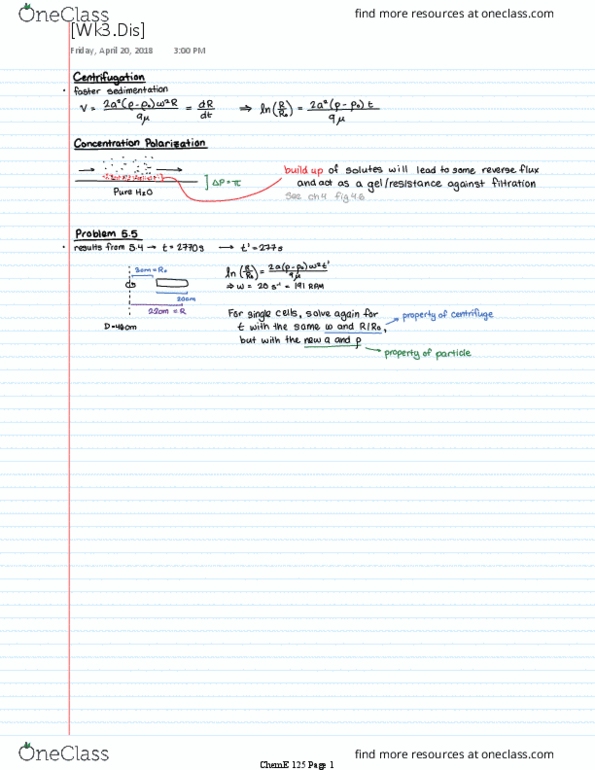 OneClass
find more resources at oneclass.com
[Wk3.Dis]
Friday, April 20, 2018 3:00 PM
Centrifugation
• faster sedimentation
V = 2a²(ρ-ρ₀)ω²R / 9μ = dR/dt ⇒ ln(R/R₀) = 2a²(ρ-ρ₀)t / 9μ
Concentration Polarization
Pure H2O
] ΔP = π
build up of solutes will lead to some reverse flux
and act as a gel/resistance against filtration
See ch4 fig 4.6
Problem 5.5
• results from 5.4 → t = 2770s → t' = 277s
2cm = R₀
20cm
22cm = R
ln(R/R₀) = 2a(ρ-ρ₀)ω²t' / 9μ
⇒ ω = 20 s⁻¹ = 191 RPM
For single cells, solve again for
t with the same ω and R/R₀,
but with the new a and ρ
property of centrifuge
property of particle
OneClass
find more resources at oneclass.com
ChemE 125 Page 1